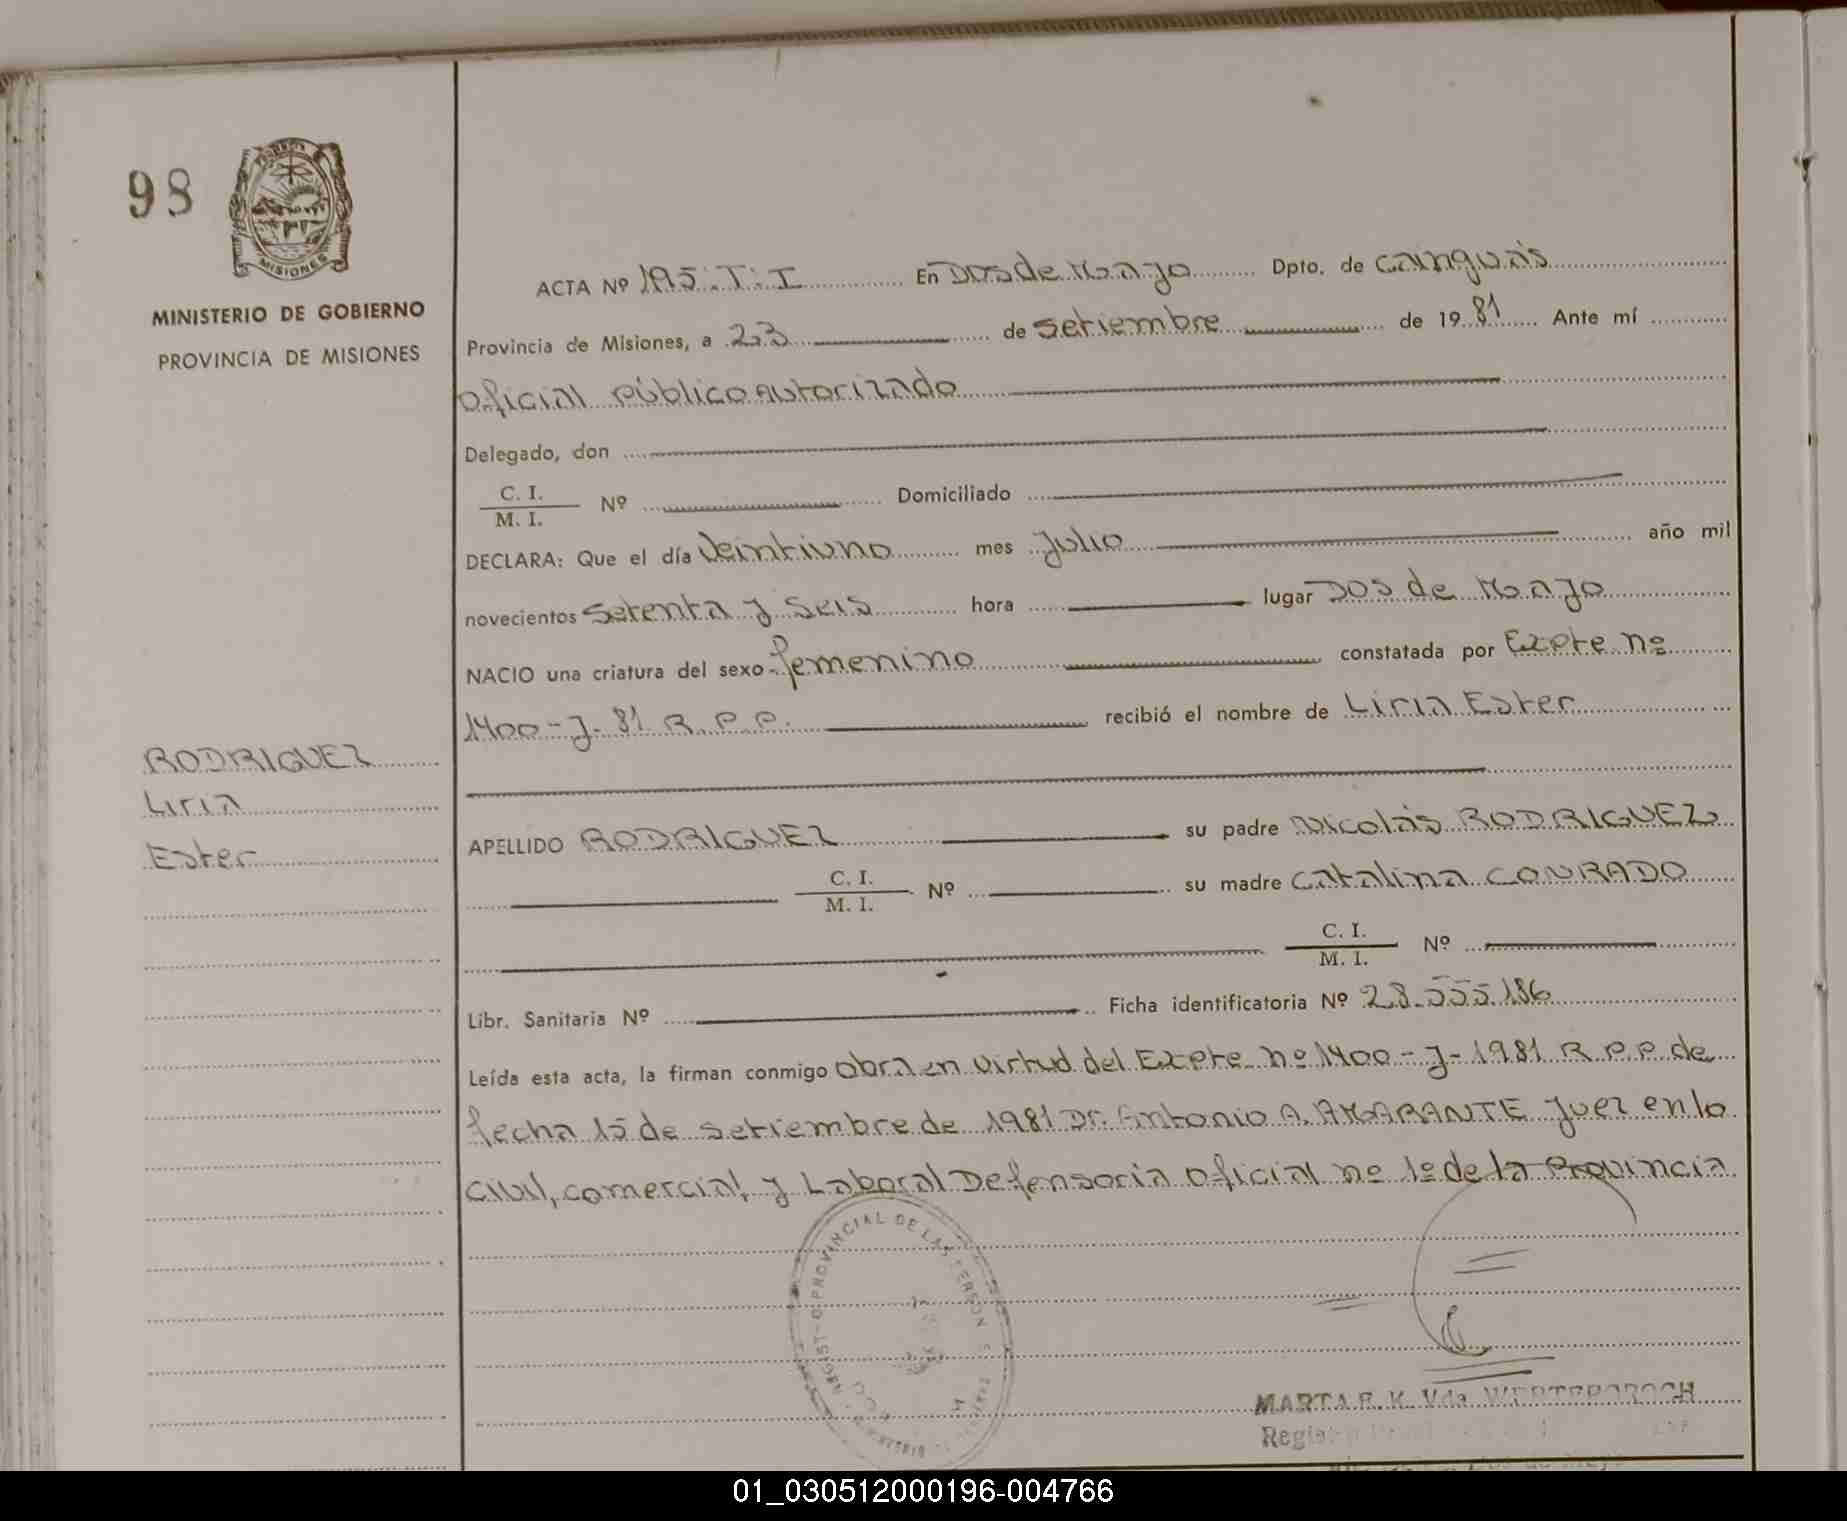 98
MISIONES
MINISTERIO DE GOBIERNO
PROVINCIA DE MISIONES
RODRIGUEZ
Liria
Ester
ACTA Nº 195.T.I En Dos de Mayo Dpto. de Cainguás
Provincia de Misiones, a 23 de setiembre de 19 81 Ante mí
Oficial Público Autorizado
Delegado, don
C. I.
M. I.
Nº Domiciliado
DECLARA: Que el día Veintiuno mes Julio año mil
novecientos Setenta y Seis hora lugar Dos de Mayo
NACIO una criatura del sexo femenino constatada por Expte nº
1400-J-81 R.P.P. recibió el nombre de Liria Ester
APELLIDO RODRIGUEZ su padre Nicolás RODRIGUEZ
C. I.
M. I.
Nº su madre Catalina CONRADO
C. I.
M. I.
Nº
Libr. Sanitaria Nº Ficha identificatoria Nº 28.555.186
Leída esta acta, la firman conmigo obra en virtud del Expte nº 1400-J-1981 R P P de
fecha 15 de setiembre de 1981 Dr. Antonio A. AMARANTE Juez en lo
Civil, comercial, y Laboral Defensoria Oficial nº 1º de la Provincia
PROVINCIAL DE LAS PERSON
MARTA E. K. Vda.
01_030512000196-004766